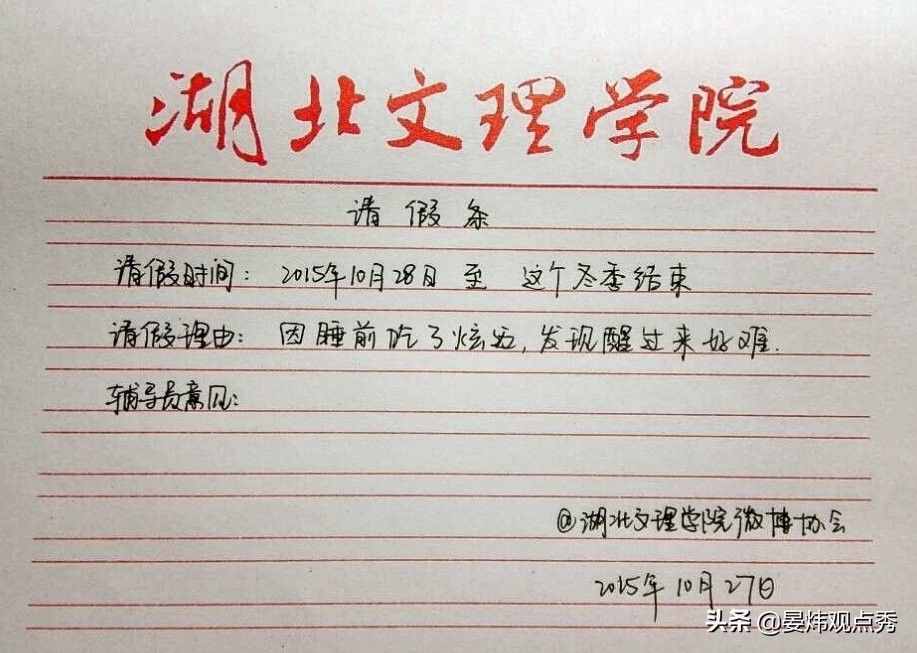 湖北文理学院
请假条
请假时间：2015年10月28日 至 这个冬季结束
请假理由：因睡前吃了炫迈，发现醒过来好难.
辅导员意见：
@湖北文理学院微博协会
2015年10月27日
头条 @晏炜观点秀